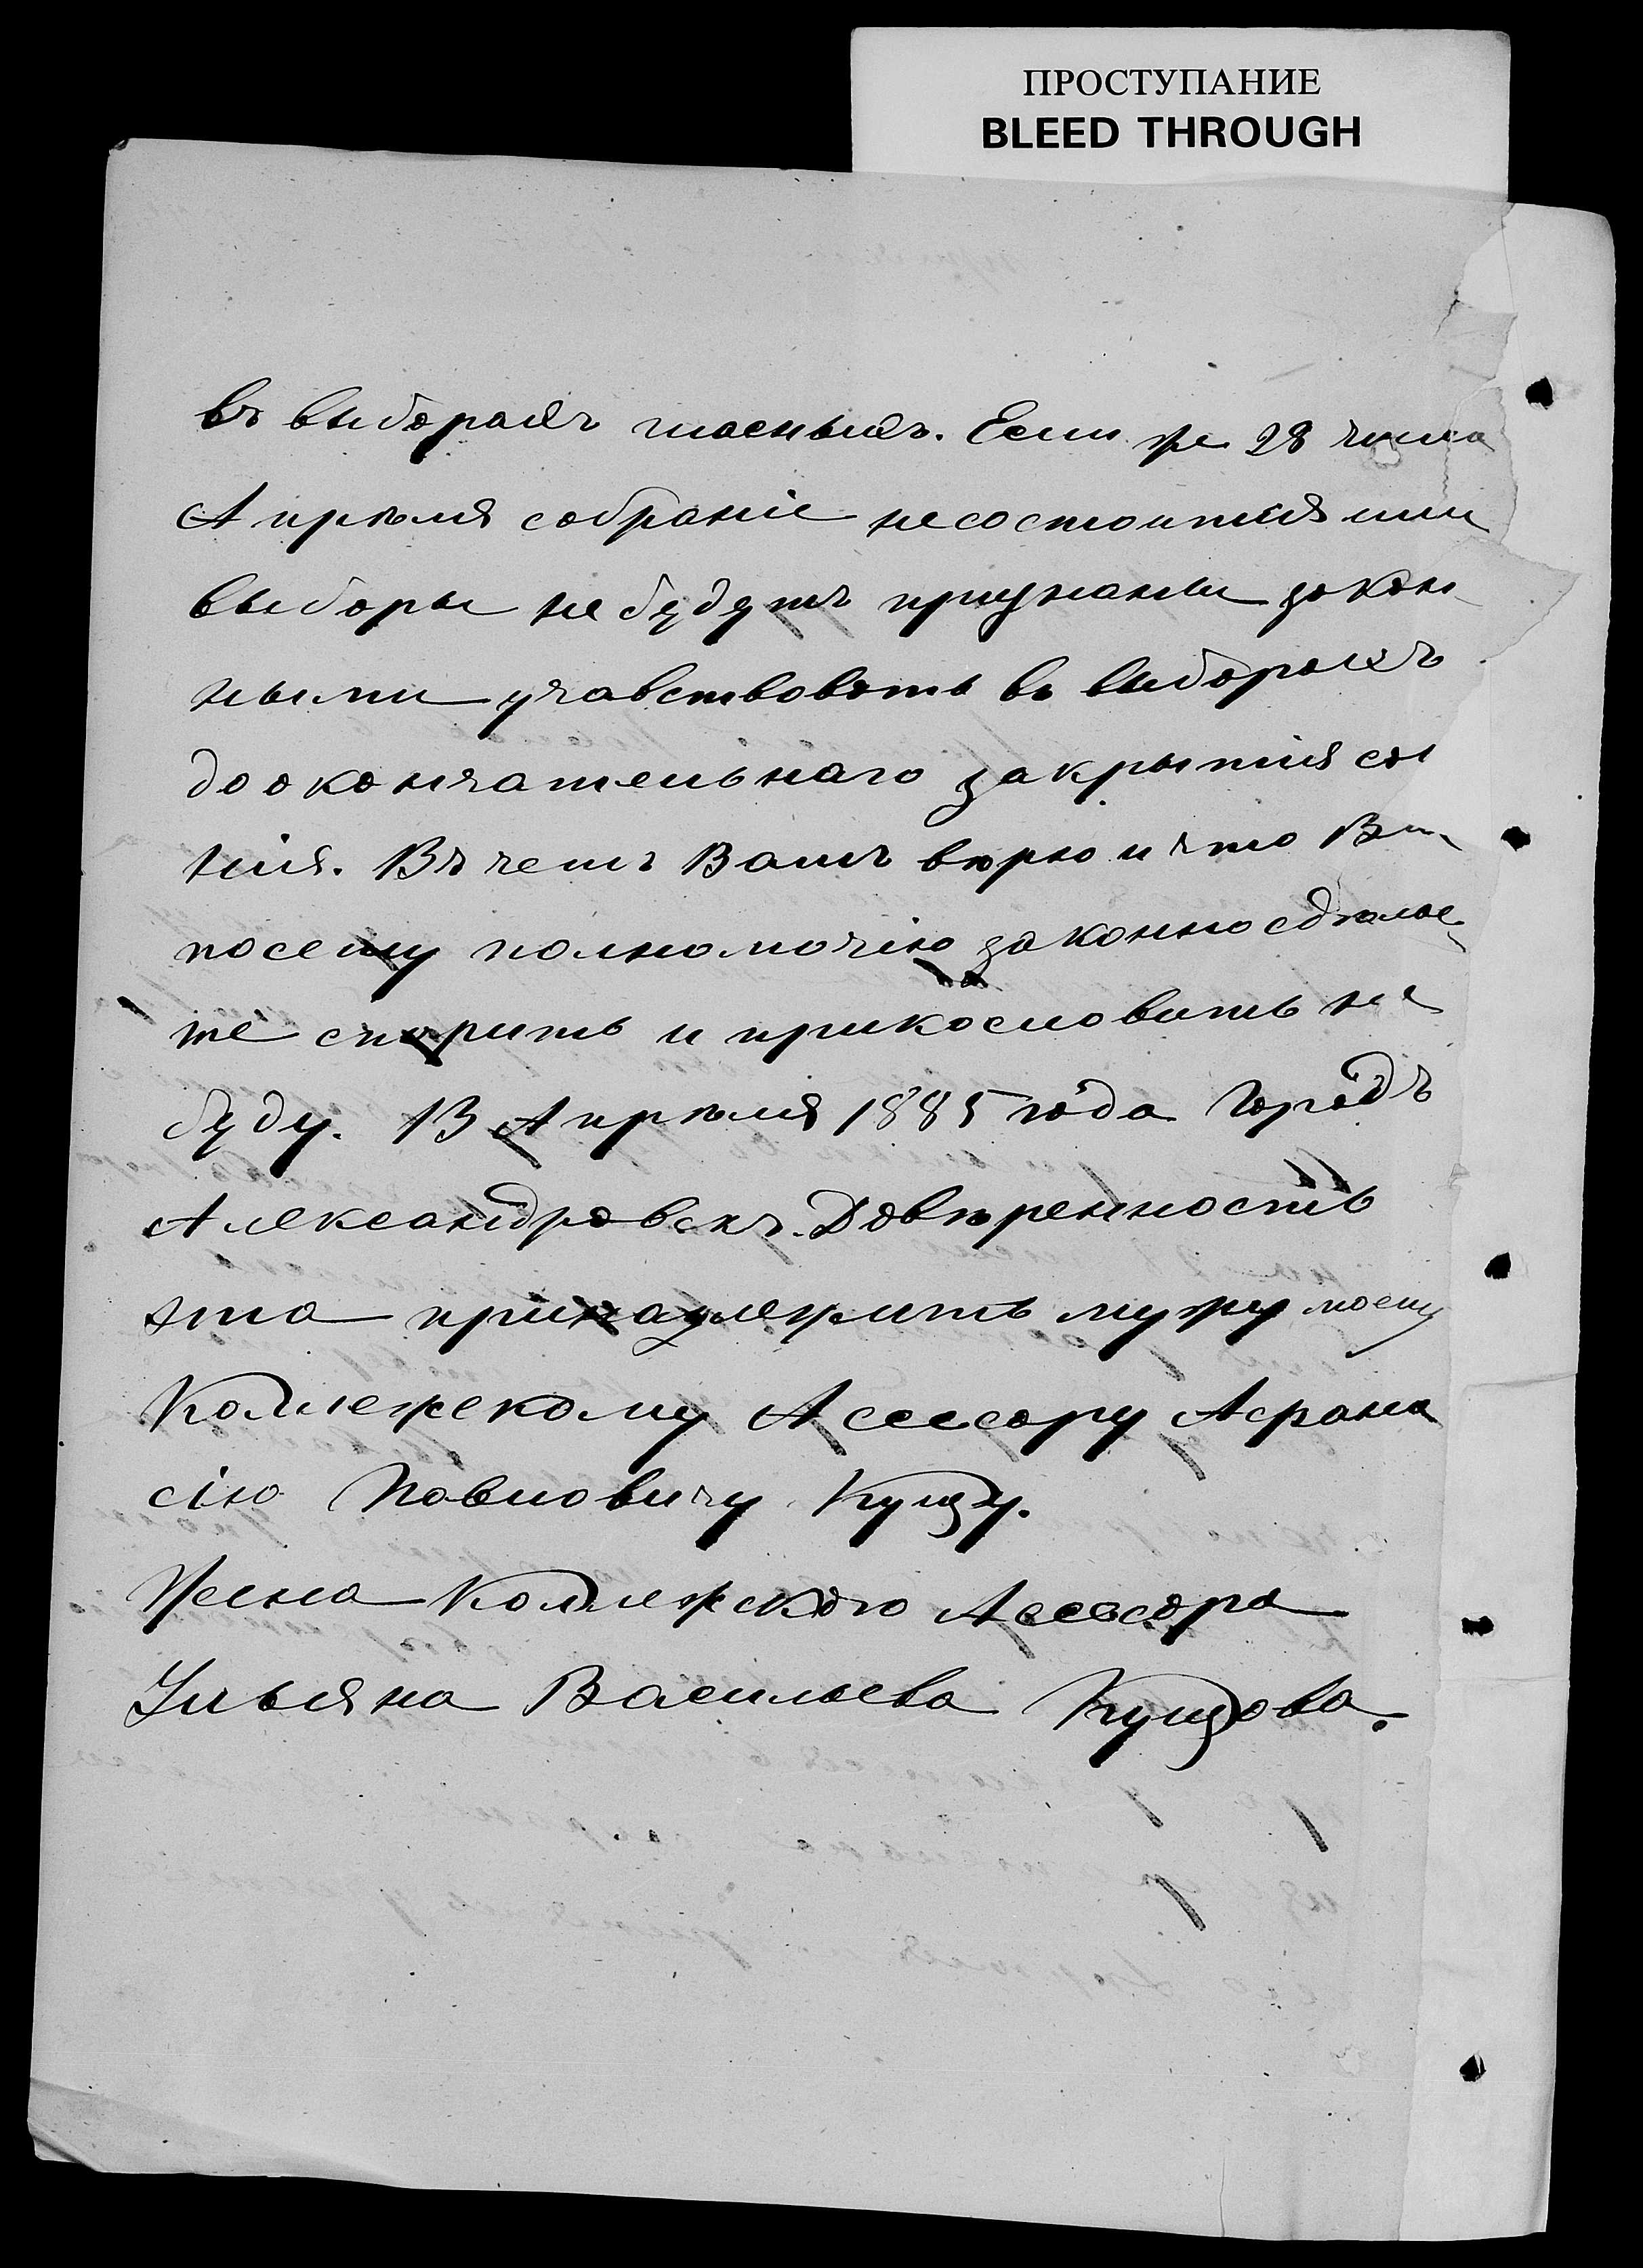 ПРОСТУПАНИЕ
BLEED THROUGH
въ выборахъ гласныхъ. Если же 28 числа
Апрѣля собраніе несостоится или
выборы не будутъ признаны закон
ными учавствовать въ выборахъ
до окончательнаго закрытія со
нія. Въ чемъ Вамъ вѣрю и что Вы
посему полномочію законно сдѣлае
те спорить и прикословить не
буду. 13 Апрѣля 1885 года Городъ
Александровскъ. Довѣренность
эта принадлежитъ мужу моему
Коллежскому Асессору Афана
сію Павловичу Кущу.
Жена Коллежскаго Асессора
Ульяна Васильева Кущова.